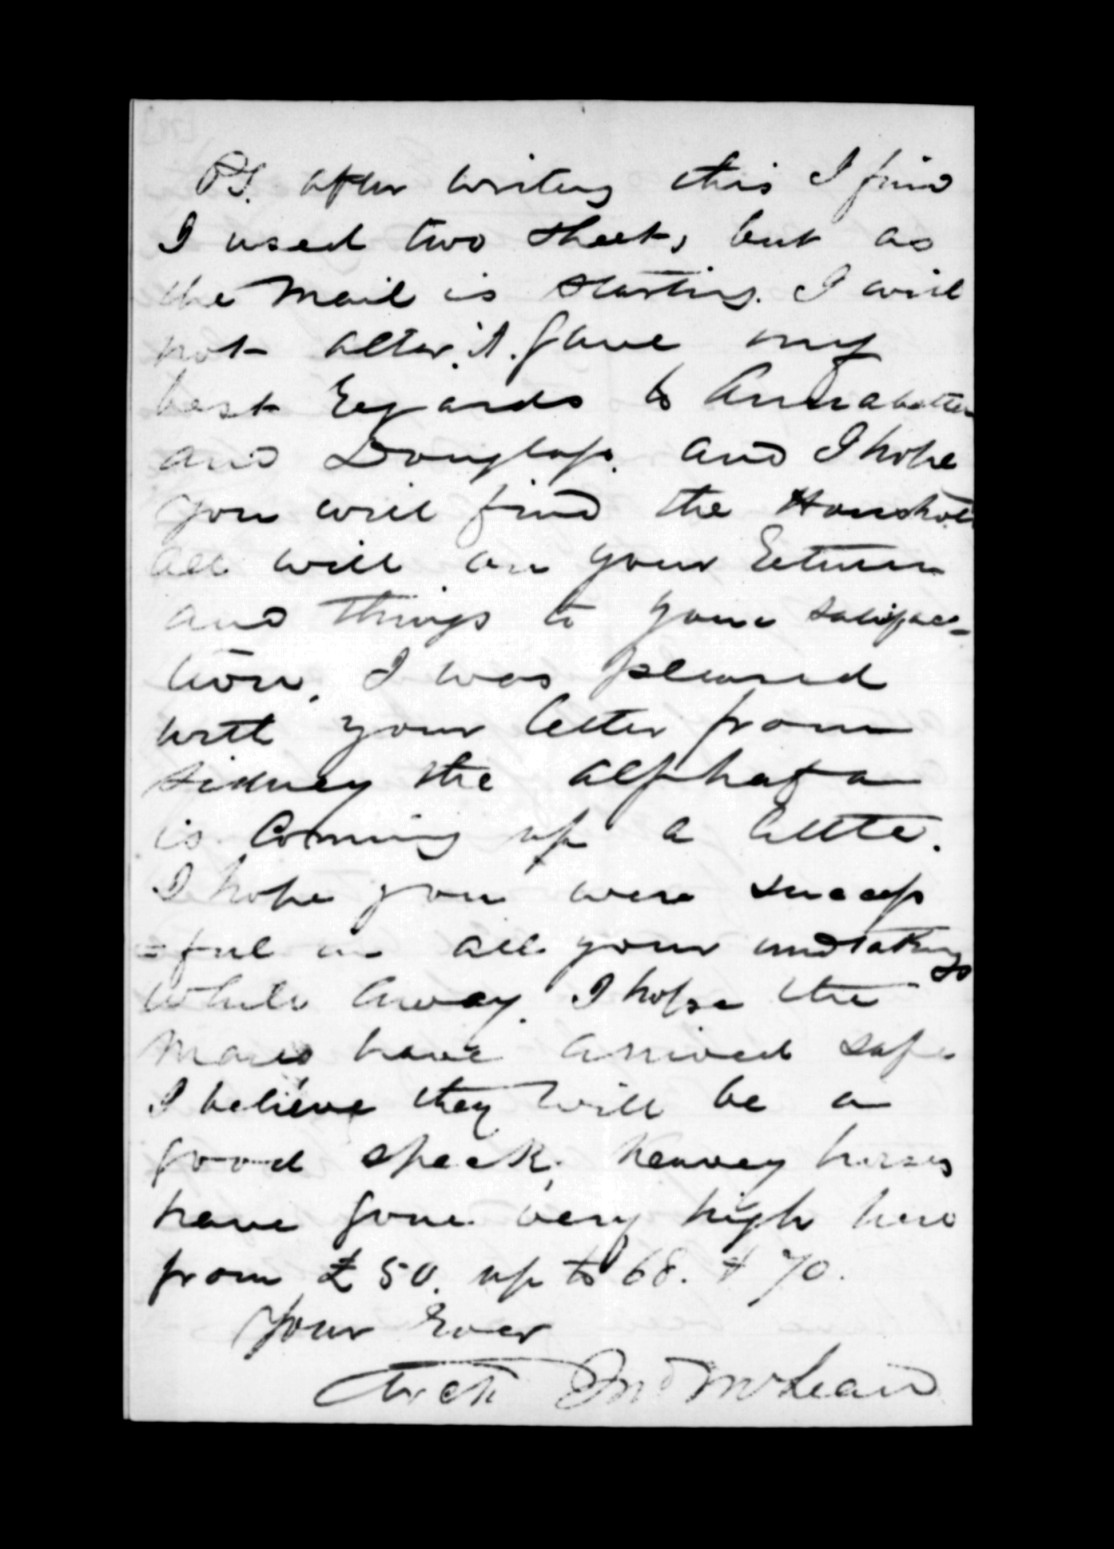 PS. after writing this I find
I used two sheets, but as
the Mail is starting. I will
not alter it. Gave my
best regards to Annabella
and Douglass. and I hope
you will find the Household
all well on your return
and things to your satisfac-
tion. I was pleased
with your letter from
Sidney the
is coming up a little.
I hope you were success
=ful in all your undtakings
while away. I hope the
Mares have arrived safe
I believe they will be a
good speck, heavey horses
have gone very high here
from £50. up to 68. & 70.
Your Ever
Arch Jno McLean